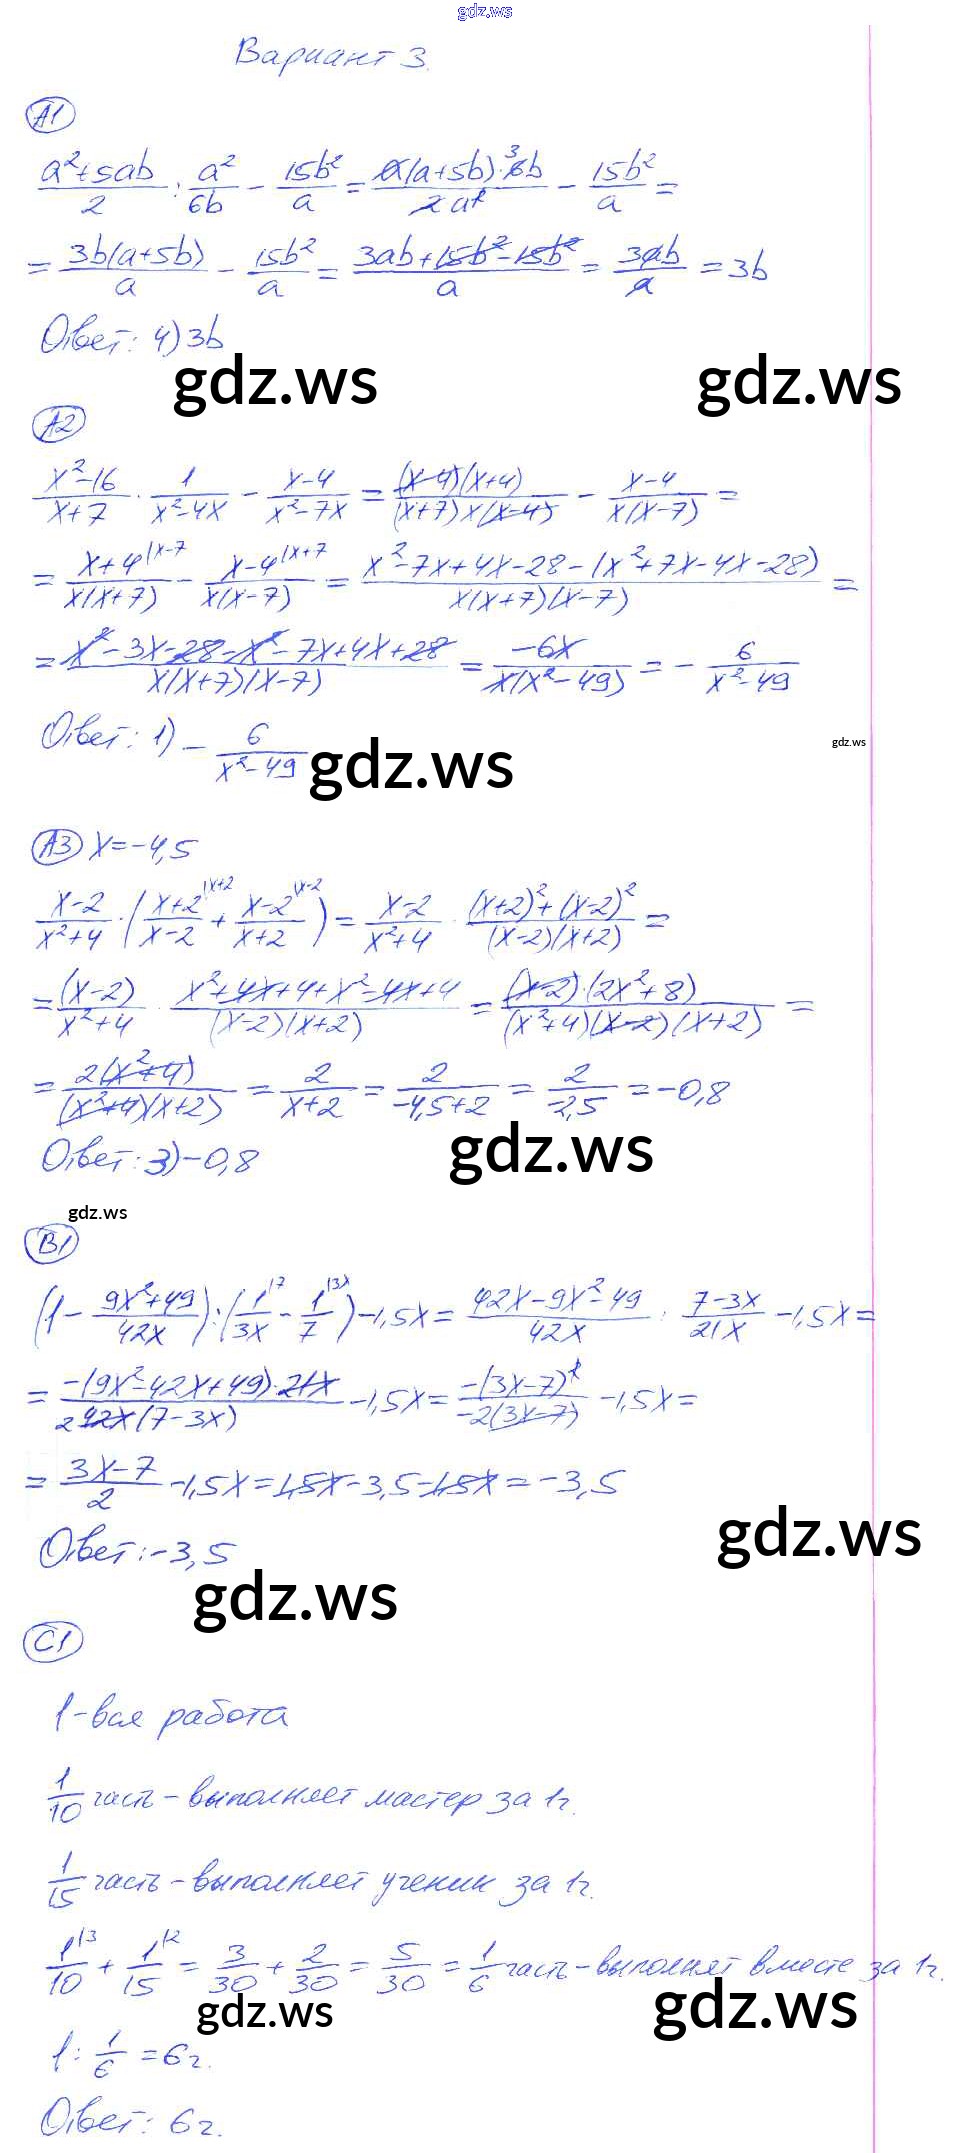 gdz.ws
Вариант 3.
А1
(a²+5ab)/2 : a²/6b − 15b²/a = (a(a+5b)·³6b)/(2a²) − 15b²/a =
= 3b(a+5b)/a − 15b²/a = (3ab+15b²−15b²)/a = 3ab/a = 3b
Ответ: 4) 3b
gdz.ws gdz.ws
А2
(x²−16)/(x+7) · 1/(x²−4x) − (x−4)/(x²−7x) = ((x−4)(x+4))/((x+7)x(x−4)) − (x−4)/(x(x−7)) =
= (x+4)/(x(x+7)) |x−7 − (x−4)/(x(x−7)) |x+7 = (x²−7x+4x−28−(x²+7x−4x−28))/(x(x+7)(x−7)) =
= (x²−3x−28−x²−7x+4x+28)/(x(x+7)(x−7)) = −6x/(x(x²−49)) = − 6/(x²−49)
Ответ: 1) − 6/(x²−49)
gdz.ws
gdz.ws
А3 x=−4,5
(x−2)/(x²+4) · ((x+2)/(x−2) |x+2 + (x−2)/(x+2) |x−2) = (x−2)/(x²+4) · ((x+2)²+(x−2)²)/((x−2)(x+2)) =
= (x−2)/(x²+4) · (x²+4x+4+x²−4x+4)/((x−2)(x+2)) = ((x−2)·(2x²+8))/((x²+4)(x−2)(x+2)) =
= 2(x²+4)/((x²+4)(x+2)) = 2/(x+2) = 2/(−4,5+2) = 2/−2,5 = −0,8
Ответ: 3) −0,8
gdz.ws
gdz.ws
В1
(1 − (9x²+49)/42x) : (1/3x |7 − 1/7 |3x) − 1,5x = (42x−9x²−49)/42x : (7−3x)/21x − 1,5x =
= (−(9x²−42x+49)·21x)/(2 42x(7−3x)) − 1,5x = −(3x−7)²/(−2(3x−7)) − 1,5x =
= (3x−7)/2 − 1,5x = 1,5x−3,5−1,5x = −3,5
Ответ: −3,5
gdz.ws
gdz.ws
С1
1 − вся работа
1/10 часть − выполняет мастер за 1ч.
1/15 часть − выполняет ученик за 1ч.
1/10 |3 + 1/15 |2 = 3/30 + 2/30 = 5/30 = 1/6 часть − выполнят вместе за 1ч.
gdz.ws gdz.ws
1 : 1/6 = 6ч.
Ответ: 6ч.